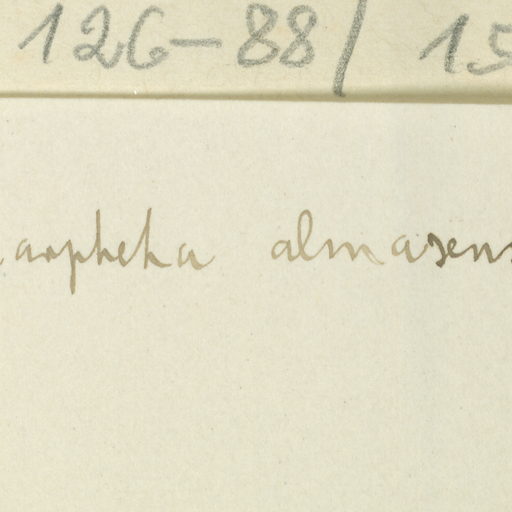 126-88/ 15
arpheha almasens